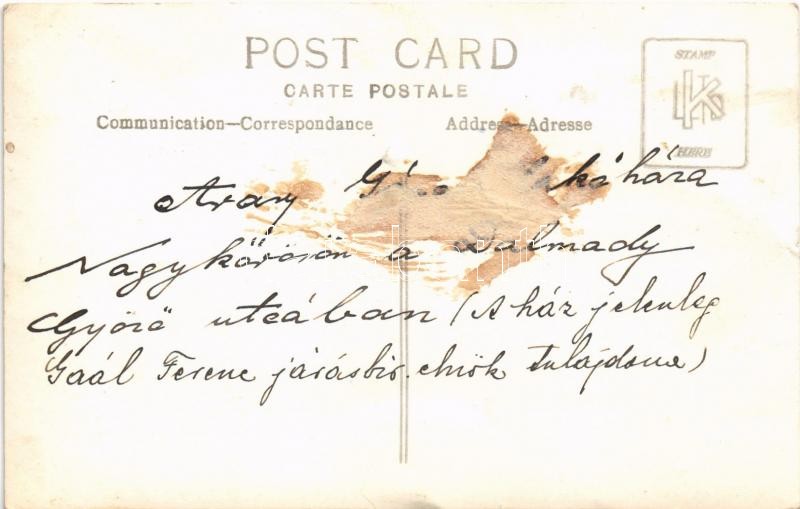 POST CARD
CARTE POSTALE
Communication—Correspondance
Address—Adresse
STAMP
HERE
Arany kóháza
Nagykőrösön a Dalmady
Győző utcában (A ház jelenleg
Gaál Ferenc járásbir. elnök tulajdona)